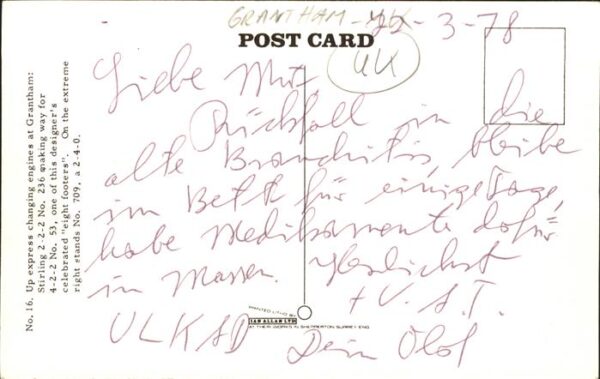 GRANTHAM
-3-78
POST CARD
UK
Liebe
Rückfall in die
alte Bronchitis, bleibe
im Bett für einige Tage,
habe Medikamente dafür
in Massen. Herzlichst
+ V. A. T.
ULKAD Dein Olof
No. 16. Up express changing engines at Grantham:
Stirling 2-2-2 No. 236 making way for
4-2-2 No. 53, one of this designer's
celebrated "eight footers". On the extreme
right stands No. 709, a 2-4-0.
PRINTED LITHO BY
IAN ALLAN LTD
AT THEIR WORKS IN SHEPPERTON SURREY ENG